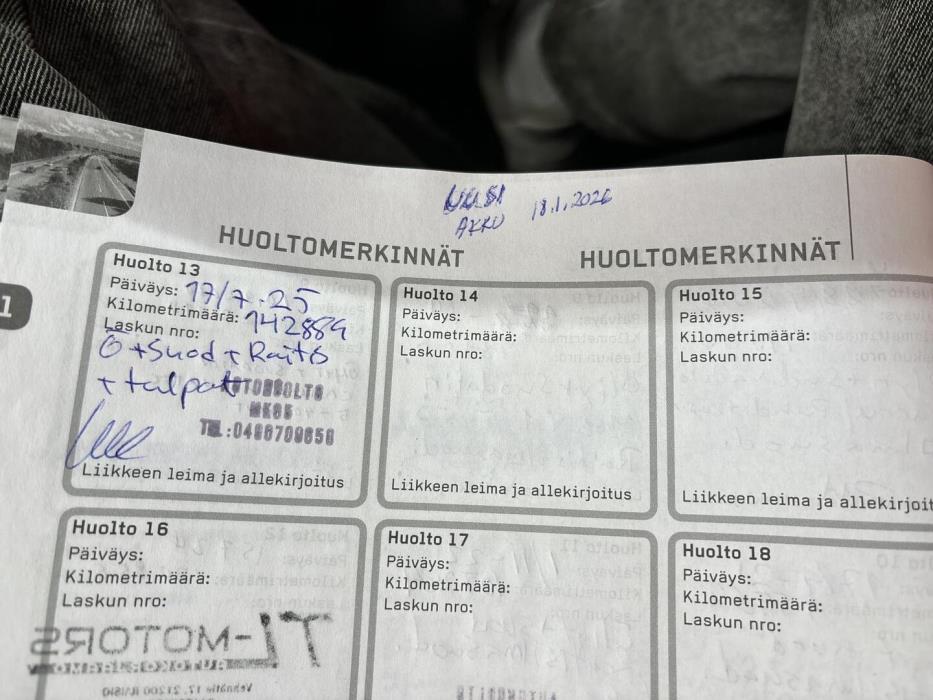 UUSI 18.1.2026
AKKU
HUOLTOMERKINNÄT
HUOLTOMERKINNÄT
1
Huolto 13
Päiväys: 17/7.25
Kilometrimäärä: 142884
Laskun nro:
Ö + Suod + Raitis
+ tulpat
TEL.:0400700650
Liikkeen leima ja allekirjoitus
Huolto 14
Päiväys:
Kilometrimäärä:
Laskun nro:
Liikkeen leima ja allekirjoitus
Huolto 15
Päiväys:
Kilometrimäärä:
Laskun nro:
Liikkeen leima ja allekirjoit
Huolto 16
Päiväys:
Kilometrimäärä:
Laskun nro:
TL-MOTORS
Huolto 17
Päiväys:
Kilometrimäärä:
Laskun nro:
Huolto 18
Päiväys:
Kilometrimäärä:
Laskun nro: